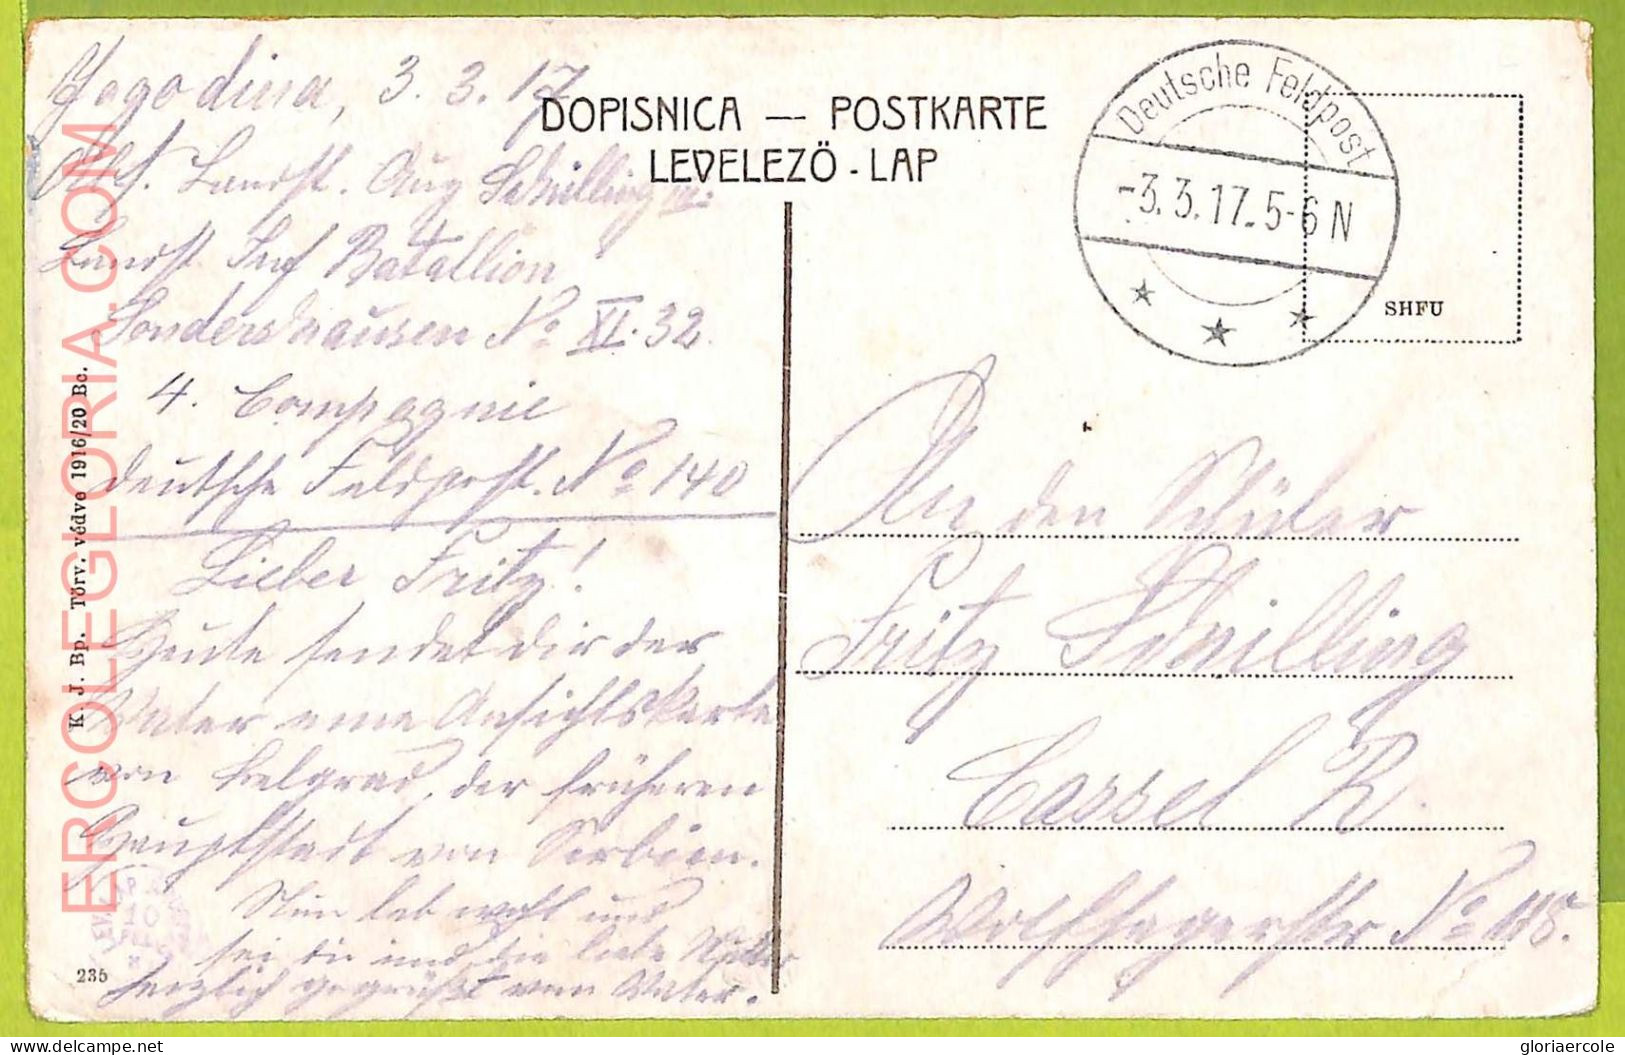 Jagodina, 3. 3. 17
Abs. Landst. Aug Schilling
Landst. Inf Batallion
Sondershausen No XI. 32.
4. Compagnie
deutsche Feldpost. No 140
Lieber Fritz!
Heute sendet dir der
Vater eine Ansichtskarte
von Belgrad, der früheren
Hauptstadt von Serbien.
Nun leb wohl und
sei du und die liebe Mutter
herzlich gegrüßt vom Vater.
DOPISNICA — POSTKARTE
LEVELEZŐ - LAP
Deutsche Feldpost
-3.3.17.5-6 N
SHFU
An den Schüler
Fritz Schilling
Cassel R.
Wolfhagerstr No 118.
K. J. Bp. Törv. védve 1916/20 Bc.
235
ERCOLEGLORIA.COM
delcampe.net
gloriaercole